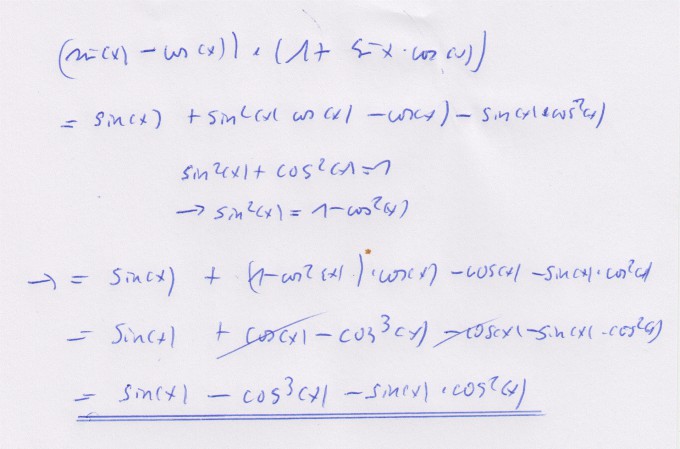 (sin(x) - cos(x)) · (1 + sin x · cos(x))
= sin(x) + sin²(x) cos(x) - cos(x) - sin(x) · cos²(x)
sin²(x) + cos²(x) = 1
→ sin²(x) = 1 - cos²(x)
→ = sin(x) + (1 - cos²(x)) · cos(x) - cos(x) - sin(x) · cos²(x)
= sin(x) + cos(x) - cos³(x) - cos(x) - sin(x) · cos²(x)
= sin(x) - cos³(x) - sin(x) · cos²(x)